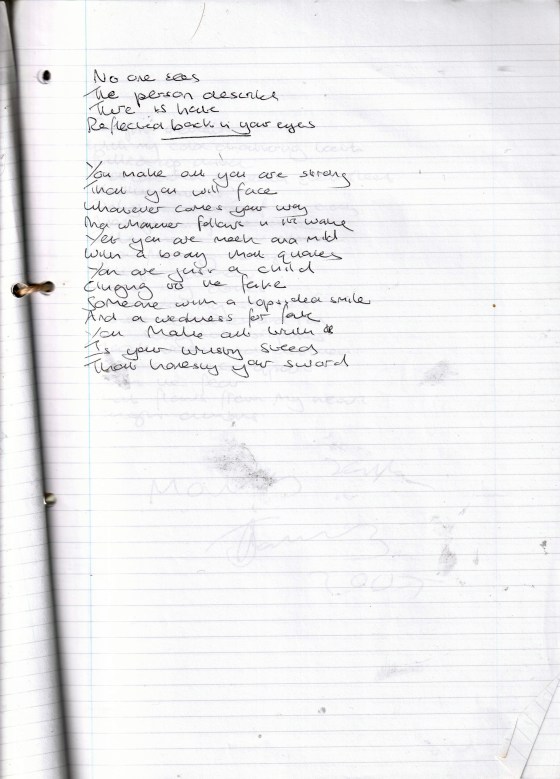 No one sees
The person described
There is hate
Reflected back in your eyes
You make out you are strong
That you will face
Whatever comes your way
And whatever follows in its wake
Yet you are meek and mild
With a body that quakes
You are just a child
Clinging to the fake
Someone with a lopsided smile
And a weakness for fate
You make out
Is your trusty steed
Than honesty your sword